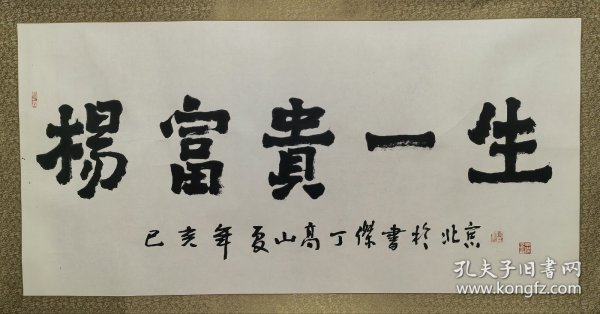 楊富貴一生
己亥年夏山高丁傑書於北京
孔夫子旧书网
www.kongfz.com